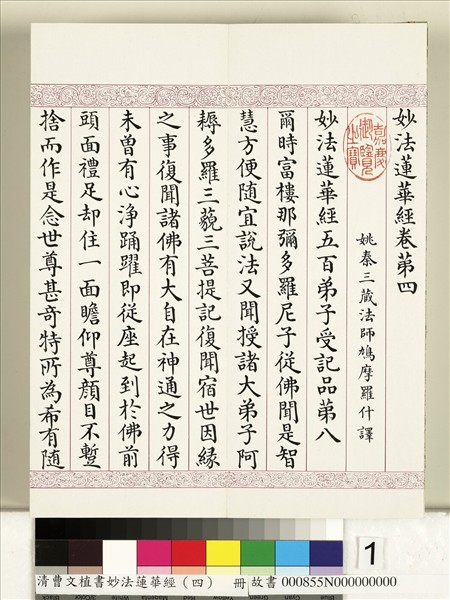 妙法蓮華經卷第四
姚秦三藏法師鳩摩羅什譯
嘉慶御覽之寶
妙法蓮華經五百弟子受記品第八
爾時富樓那彌多羅尼子從佛聞是智
慧方便隨宜說法又聞授諸大弟子阿
耨多羅三藐三菩提記復聞宿世因緣
之事復聞諸佛有大自在神通之力得
未曾有心淨踊躍即從座起到於佛前
頭面禮足却住一面瞻仰尊顏目不蹔
捨而作是念世尊甚奇特所為希有隨
1
清曹文植書妙法蓮華經(四) 冊 故書 000855N000000000